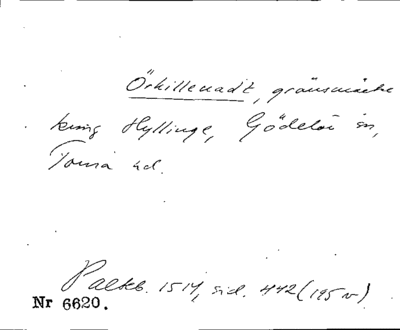 Örkillenadt, gränsmärke
kring Hyllinge, Gödelöv sn,
Torna hd.
Palteb. 1514, sid. 442 (195 v)
Nr 6620.